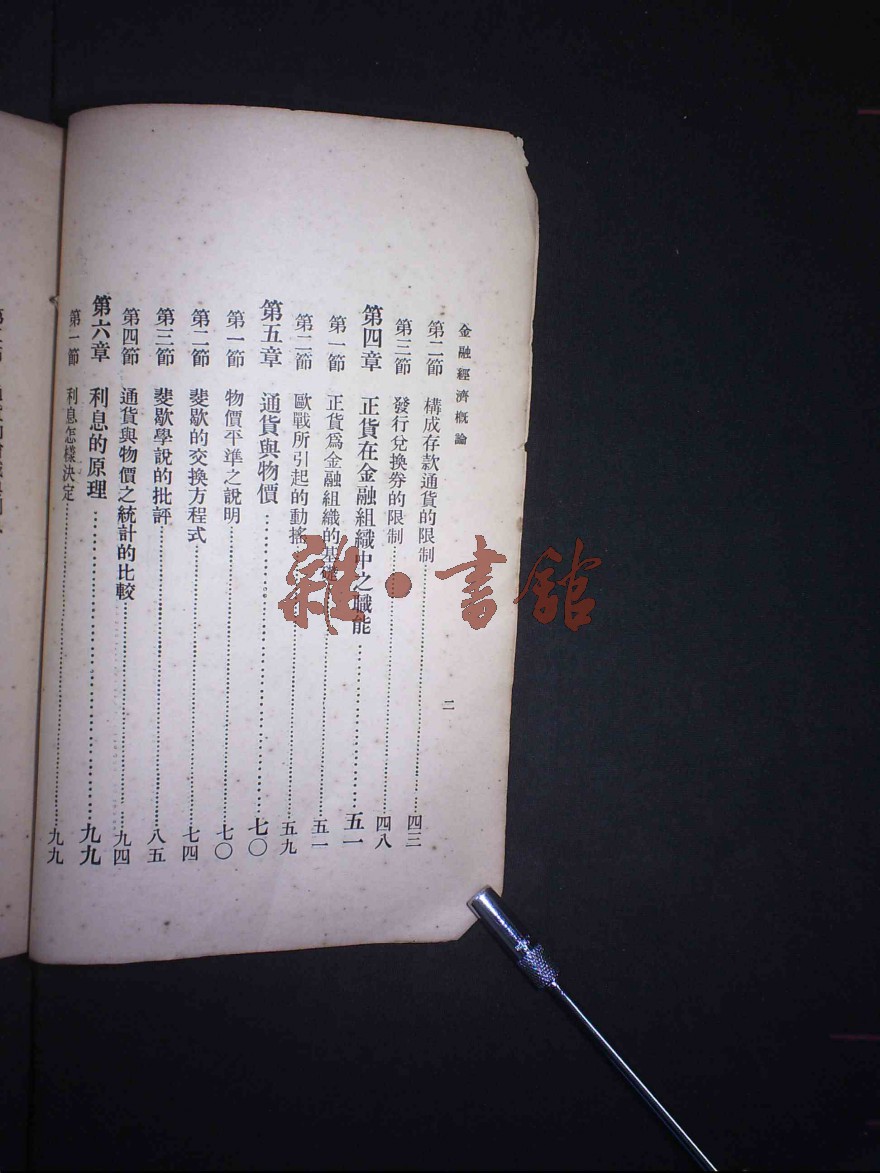 金融經濟概論
二
第二節 構成存款通貨的限制……四三
第三節 發行兌換券的限制……四八
第四章 正貨在金融組織中之職能……五一
第一節 正貨爲金融組織的基礎……五一
第二節 歐戰所引起的動搖……五九
第五章 通貨與物價……七〇
第一節 物價平準之說明……七〇
第二節 斐歇的交換方程式……七四
第三節 斐歇學說的批評……八五
第四節 通貨與物價之統計的比較……九四
第六章 利息的原理……九九
第一節 利息怎樣決定……九九
雜·書館